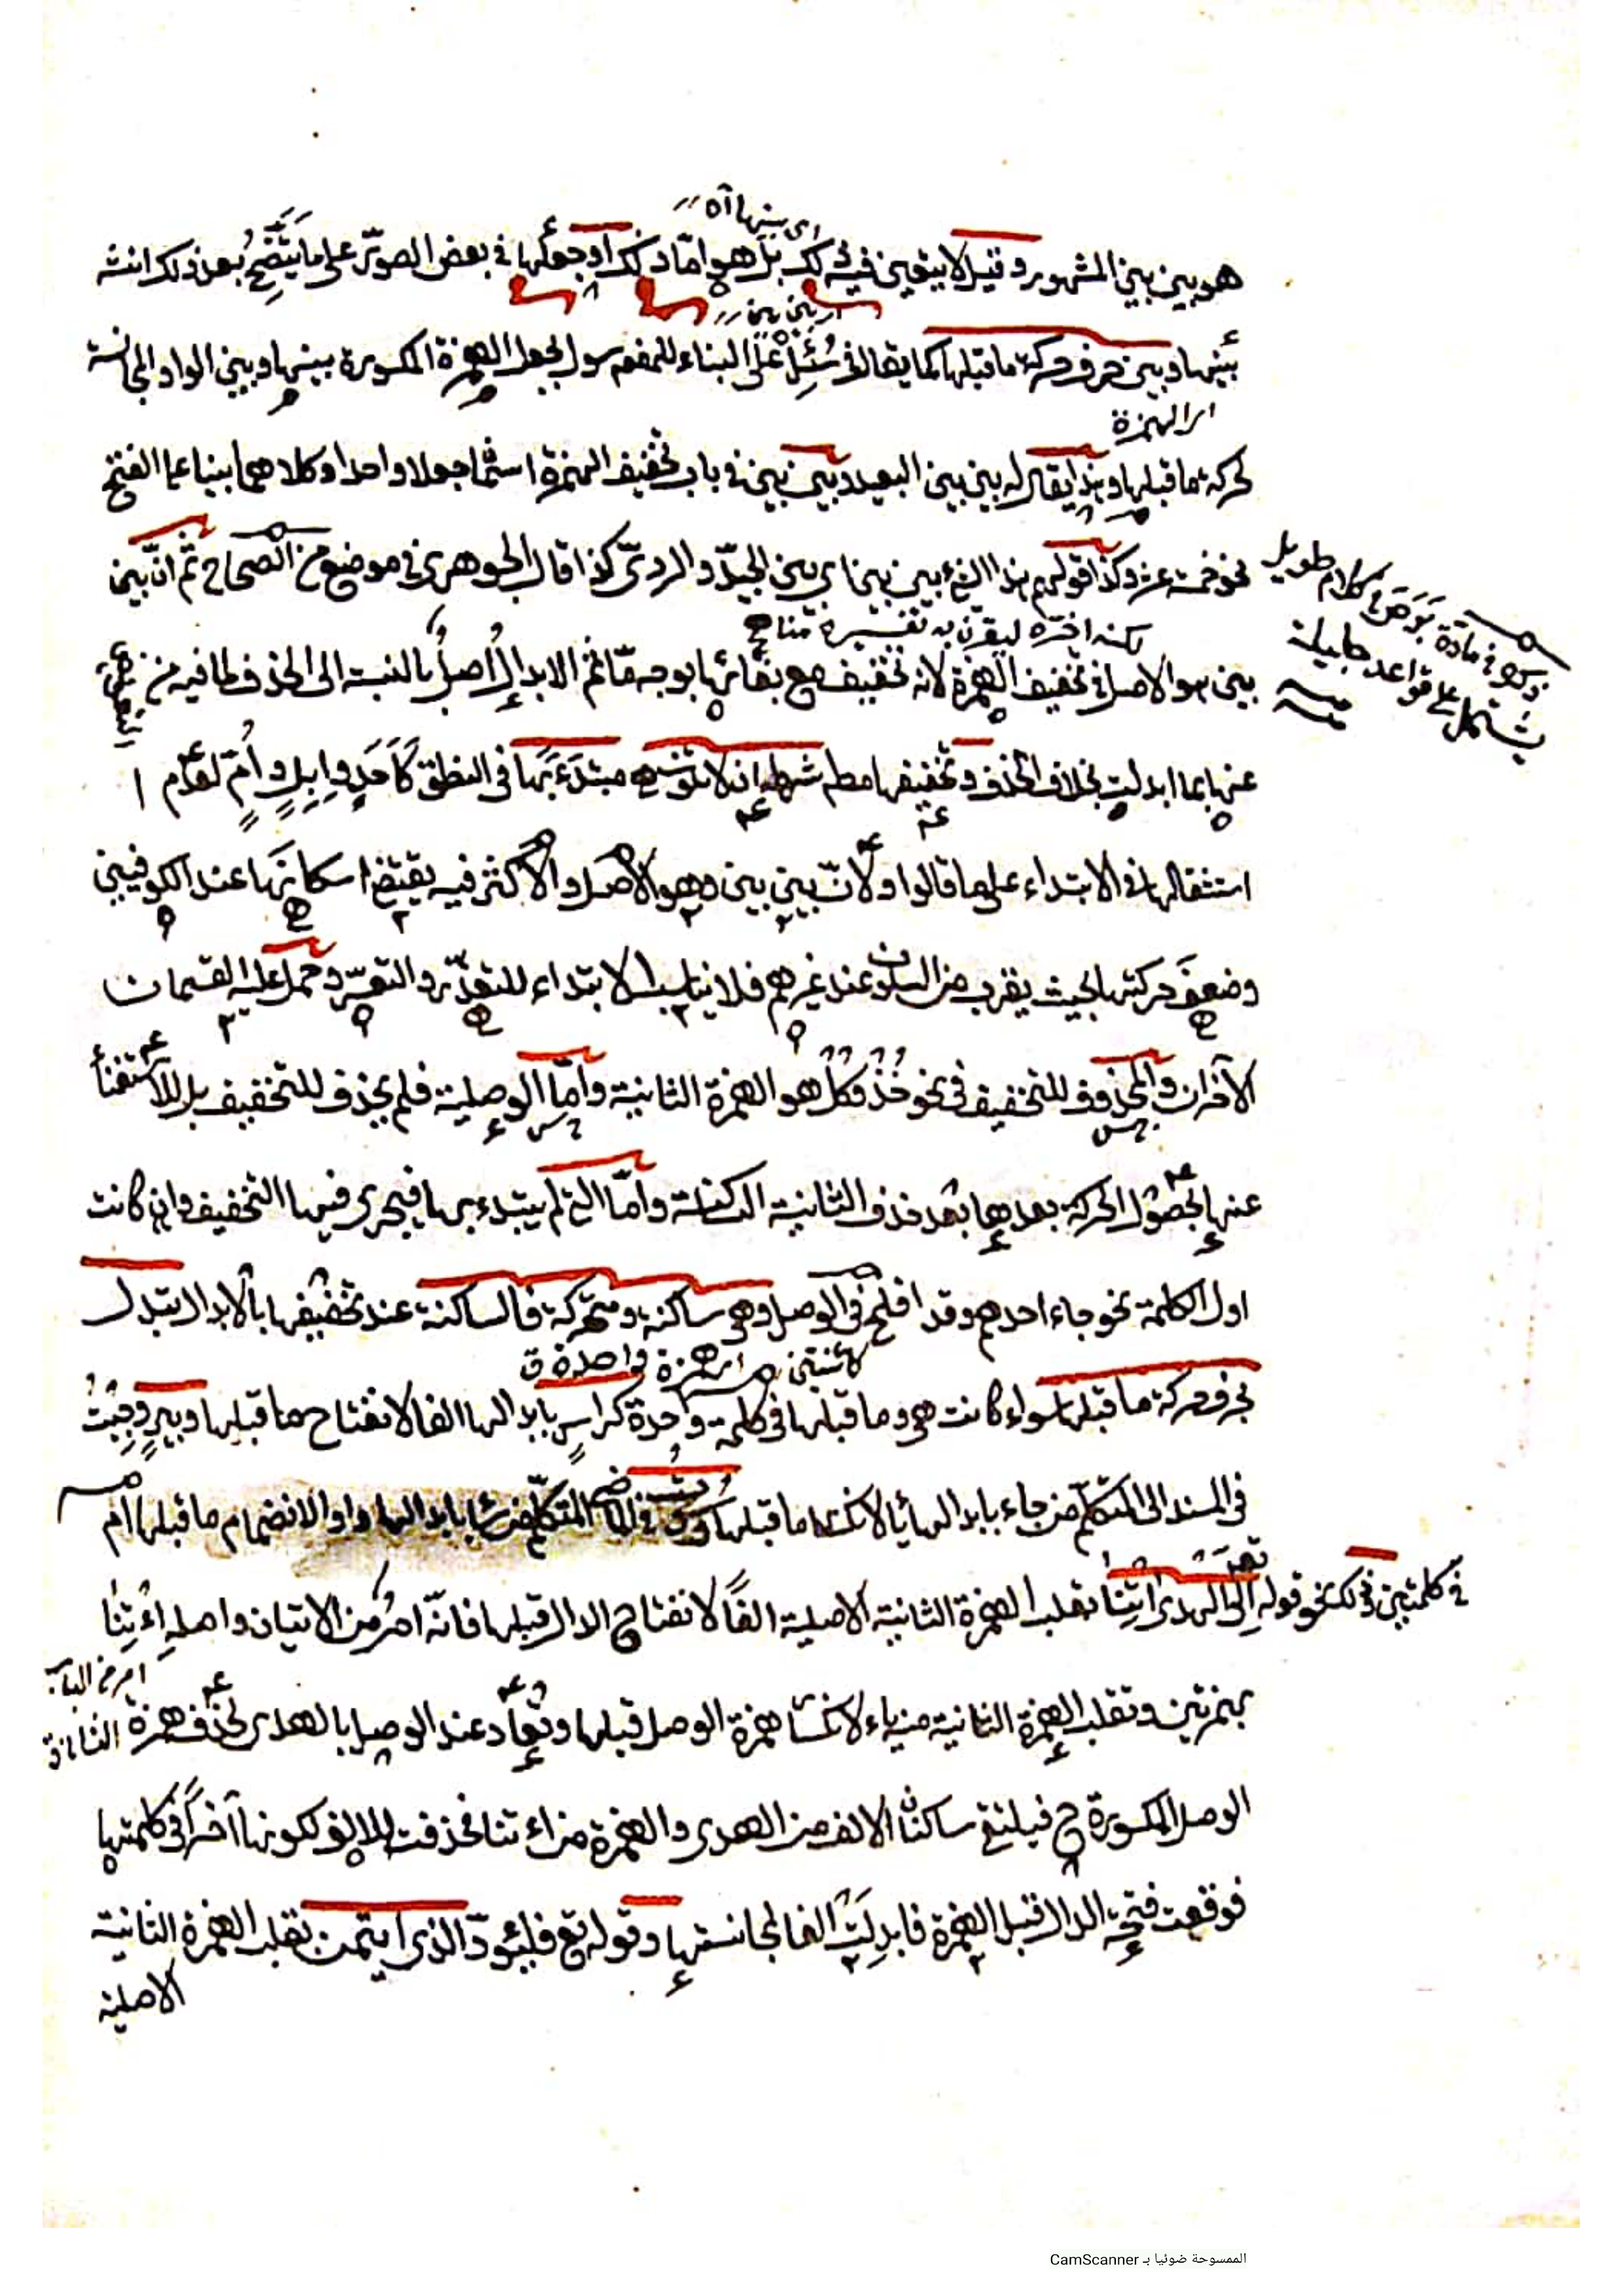 اى بينها اه
هو بين بين المشهور وقيل لا يتعين فيه ذلك بل هو اما ذلك او جعلها فى بعض الصور على ما يتضح بعد ذلك انشه
بين بين
بينها وبين حرف حركة ما قبلها كما يقال فى سئل على البناء للمفعول سول بجعل الهمزة المكسورة بينها وبين الواو المجانسة
اى الهمزة
لحركة ما قبلها وهذا يقال له بين بين البعيد وبين بين فى باب تخفيف الهمزة اسمان جعلا واحدا وكلاهما بنيا على الفتح
نحو خمسة عشر وكذا قولهم هذا الشئ بين بين اى بين الجيد والردى كذا قال الجوهرى فى موضع من الصحاح ثم ان بين
ذكره فى مادة كلام طويل
يشتمل على قواعد جليلة
لكنه اخره ليقرن به تفسيره
بين هو الاصل فى تخفيف الهمزة لانه تخفيف مع بقائها بوجه ما ثم الابدال اصل بالنسبة الى الحذف لما فيه من
عنها بما ابدلت بخلاف الحذف وتخفيفها مطم شرطه ان لا تقع مبتدء بها فى النطق كاحد وابل وام لعدم
استثقالها فى الابتداء على ما قالوا ولان بين بين وهو الاصل والاكثر فيه يقتضى اسكانها عند الكوفيين
وضعف حركتها بحيث يقرب من السكون عند غيرهم فلا يناسب الابتداء للتعذر والتعسر وحمل عليه القسمان
الآخران والمحذوف للتخفيف فى نحو خذ وكل هو الهمزة الثانية واما الوصلية فلم يحذف للتخفيف بل للاستغناء
عنها لحصول الحركة بعدها بعد حذف الثانية الساكنة واما التى لم يبتدء بها فيجرى فيها التخفيف وان كانت
اول الكلمة نحو جاء احدهم وقد افلح فى الوصل وهى ساكنة ومتحركة فالساكنة عند تخفيفها بالابدال تبدل
همزة واحدة
بحرف حركة ما قبلها سواء كانت هى وما قبلها فى كلمة واحدة كراس بابدالها الفا لانفتاح ما قبلها وبير وجيت
فى المسند الى المتكلم من جاء بابدالها يا لانكسار ما قبلها بابدالها واوا لانضمام ما قبلها ام
فى كلمتين وذلك نحو قوله تعالى الى الهدى ائتنا تقلب الهمزة الثانية الاصلية الفا لانفتاح الدال قبلها فانه امر من الاتيان واصله اءتنا
بهمزتين وتقلب الهمزة الثانية منه ياء لانكسار همزة الوصل قبلها وتعاد عند الوصل بالهدى لحذف همزة
الوصل المكسورة ح فيلتقى ساكنان الالف من الهدى والهمزة من اءتنا فحذفت الالف لكونها آخرا فى كلمتها
فوقعت فتحة الدال قبل الهمزة فابدلت الفا لمجانستها وقوله تع فليؤد الذى ايتمن تقلب الهمزة الثانية
الاصلية
الممسوحة ضوئيا بـ CamScanner